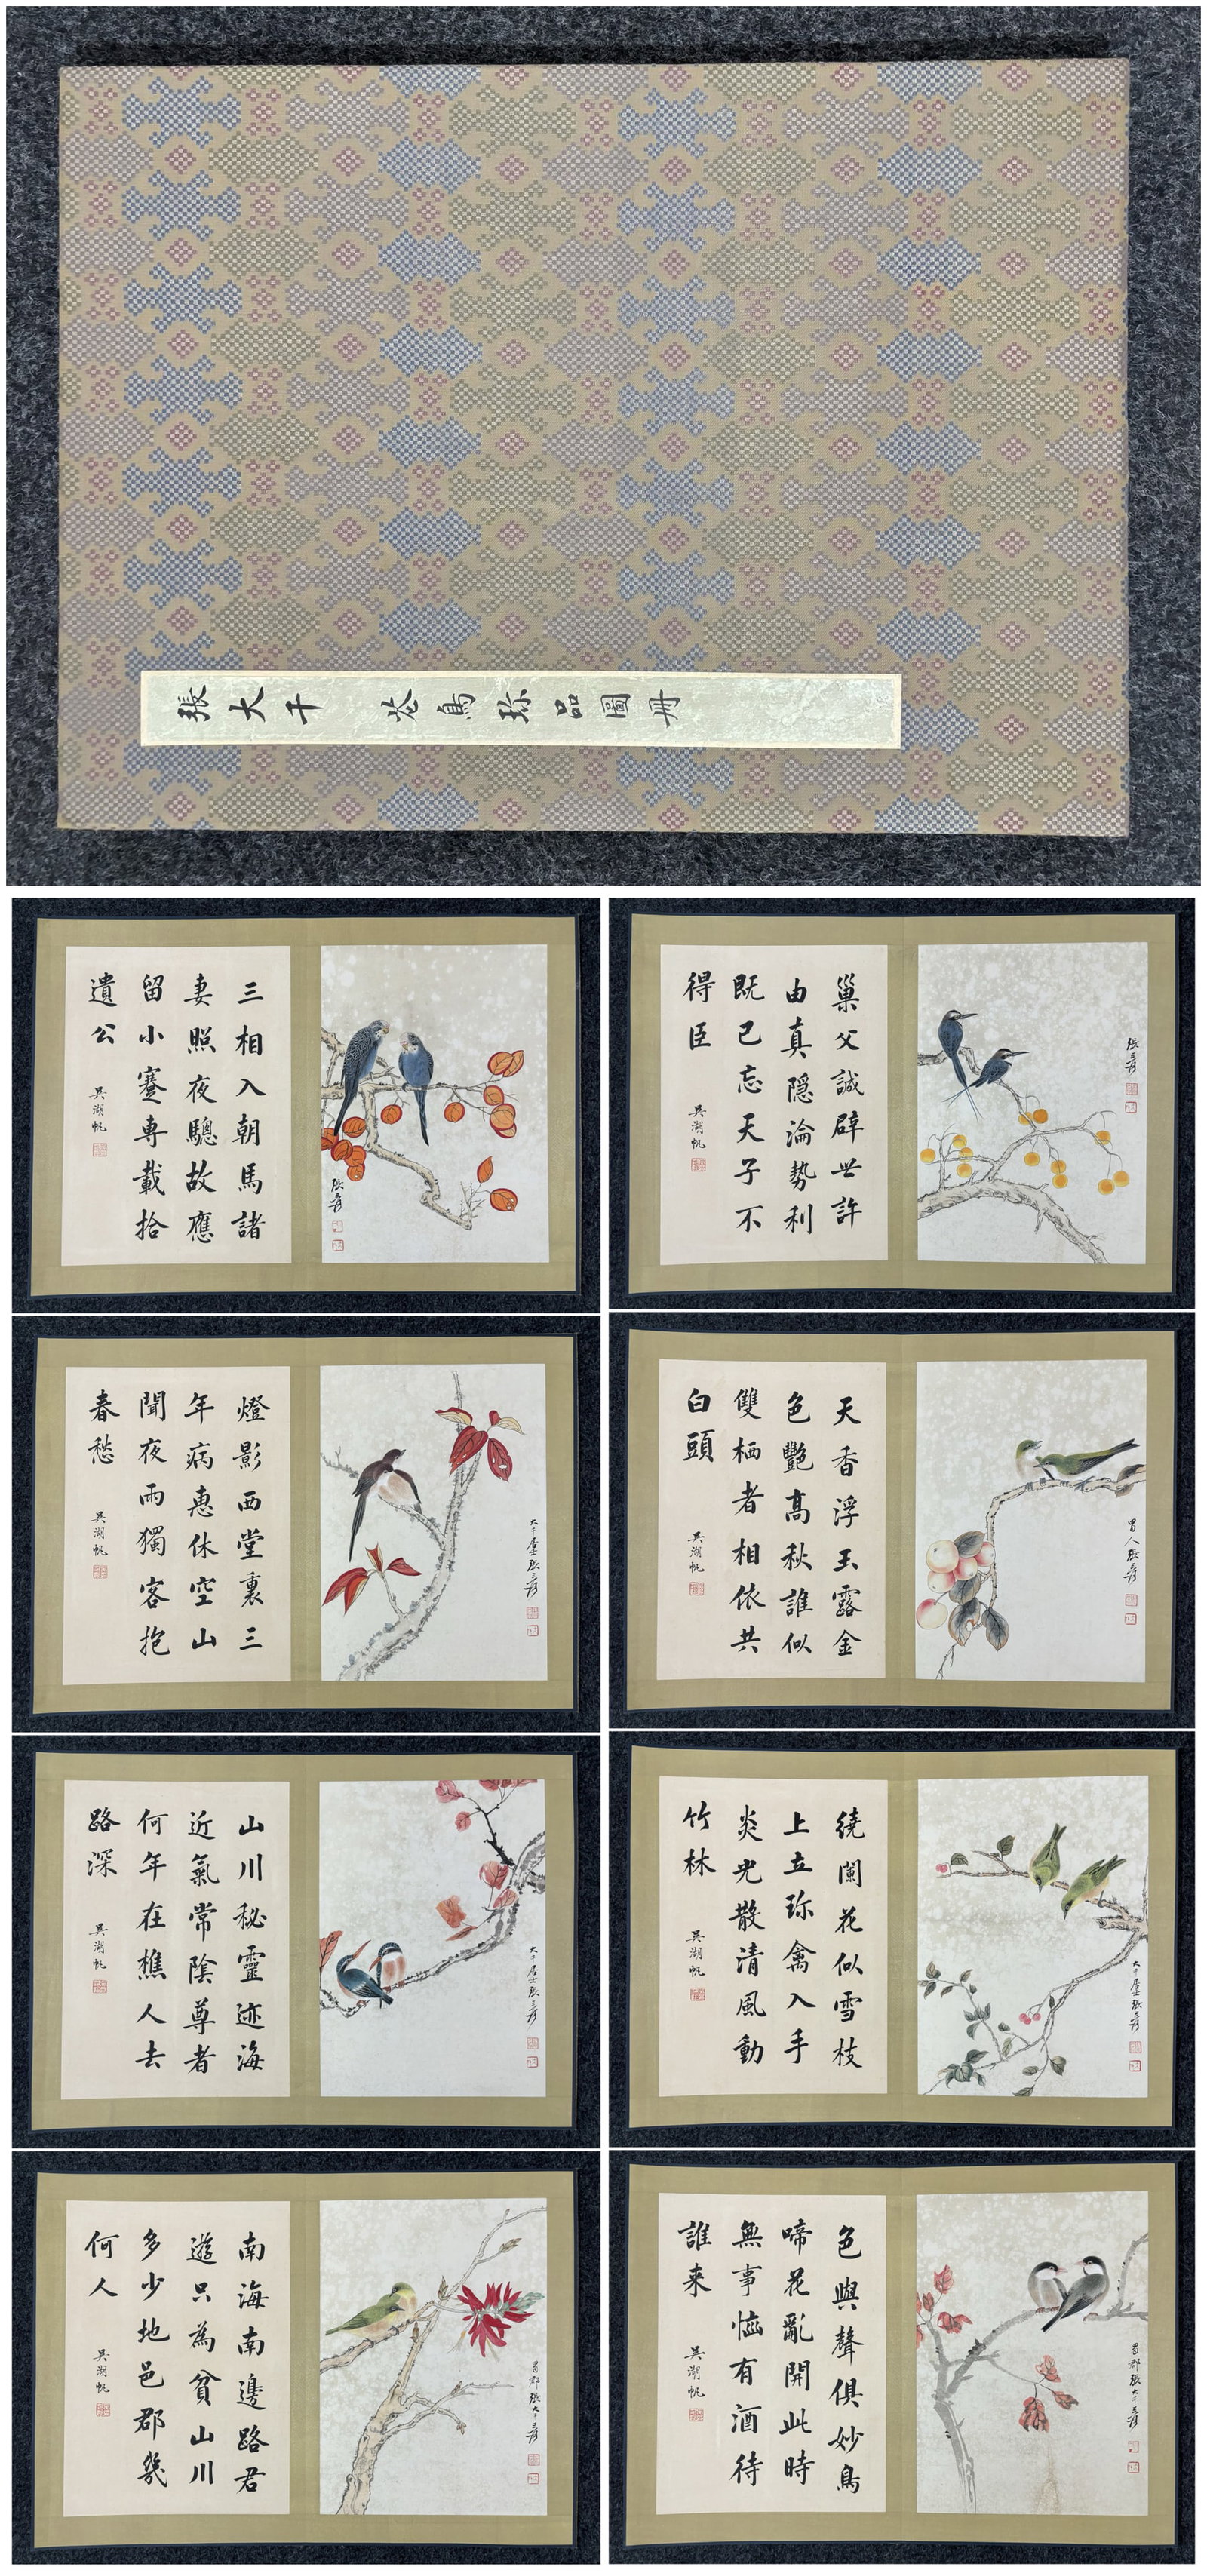 張大千 花鳥珍品圖冊
三相入朝馬諸
妻照夜驄故應
留小蹇專載拾
遺公
吳湖帆
張爰
巢父誠辟世許
由真隱淪勢利
既已忘天子不
得臣
吳湖帆
張爰
燈影西堂裏三
年病惠休空山
聞夜雨獨客抱
春愁
吳湖帆
大千居士張爰
天香浮玉露金
色艷高秋誰似
雙栖者相依共
白頭
吳湖帆
蜀人張爰
山川秘靈迹海
近氣常陰尊者
何年在樵人去
路深
吳湖帆
大千居士張爰
繞闌花似雪枝
上立珎禽入手
炎光散清風動
竹林
吳湖帆
大千居士張爰
南海南邊路君
遊只為貧山川
多少地邑郡幾
何人
吳湖帆
蜀郡張大千爰
色與聲俱妙鳥
啼花亂開此時
無事恤有酒待
誰来
吳湖帆
蜀郡張大千爰